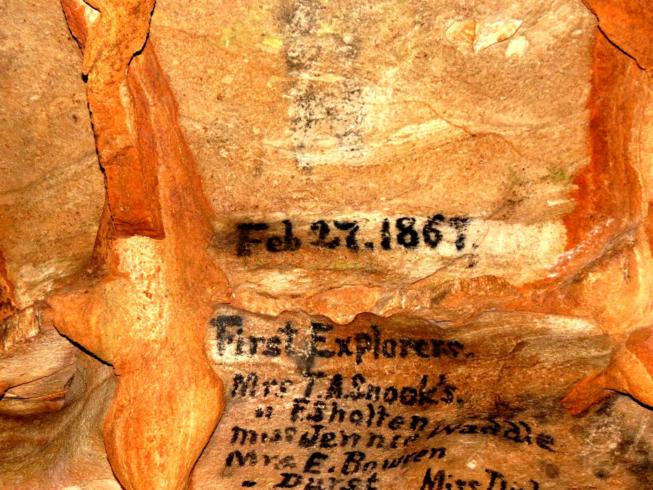 Feb 27. 1867.
First Explorers.
Mrs T.A.Snook's.
" F.Sholten
miss Jennie Waddle
Mrs E. Bowren
" Durst Miss